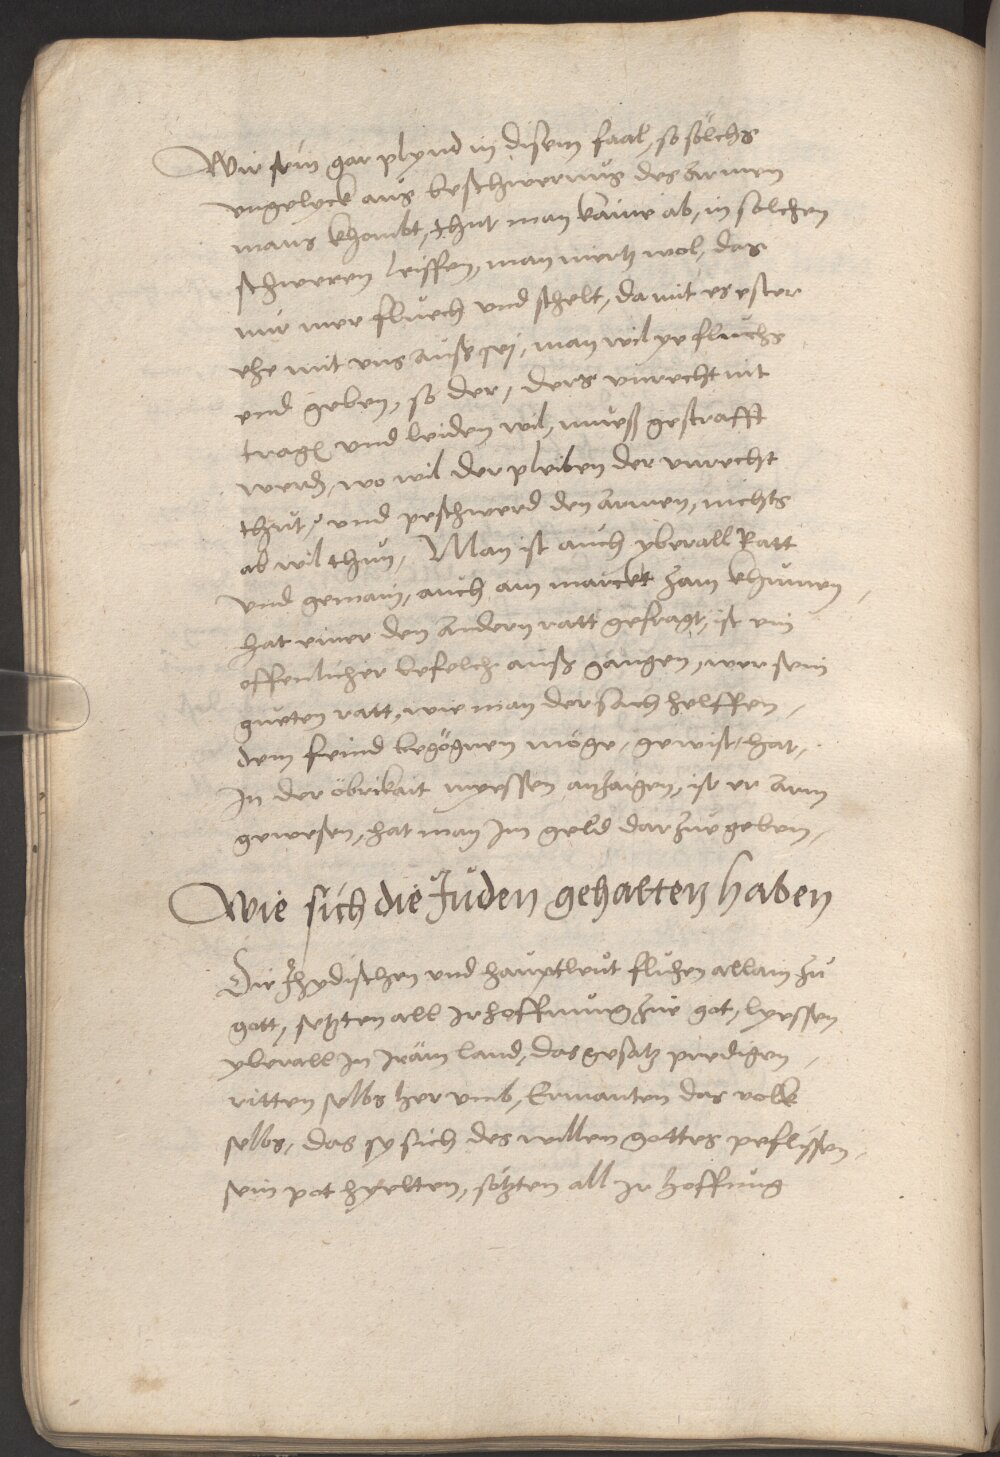 Wir sein gar plynd in disem faal, so sölchs
vngelyck aus beschwernus des Armen
mans khombt, thut man kaine ab, in solchen
schweren leiffen, man mertz wol, das
nur mer fluech vnd schelt, da mit es ester
ehe mit vns auß sej, man wil ye fluchs
end geben, so der, ders vnrecht nit
tragen vnd leiden wil, mueß gestrafft
werden, wo wil der pleiben der vnrecht
thuet, vnd peschwerd den Armen, nichts
ab wil thun, Man ist auch yberall Ratt
vnd gemain, auch am marckt zam khumen,
hat einer den Andern ratt gefragt, ist ein
offenlicher befelch auß gangen, wer sein
gueten ratt, wie man der sach helffen,
dem feind begögnen möge, gewist hat,
In der öbrikait myessen anzaigen, ist er Arm
gewesen, hat man Im geld darzue geben,
Wie sich die Juden gehalten haben
Die Jhydischen vnd hauptleut fluhen allain zu
gott, setzten all Ir hoffnung zue got, lyessen
yberall In Iräm land, das gesatz predigen,
ritten selbs her vmb, Ermanten das volk
selbs, das sy sich des willen gottes peflissen,
sein pot hyelten, sötzten all Ir hoffnug